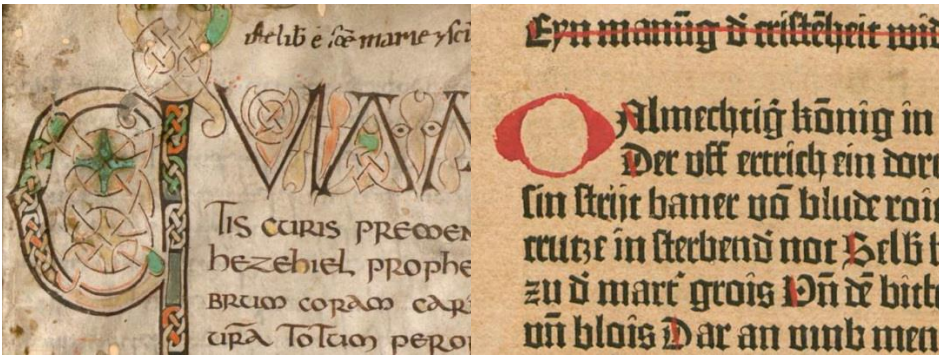 lib e s̅c̅e marie
TIS CURIS PREMEN
hEZEhIEL PROPhE
BRUM CORAM CAR
URA TOTUM PERO
Eyn manu̅g d̕ criste̅heit wid
O Almechtig̅ kōnig in
Der vff ertrich ein dorn
sin strijt baner vō blude roi
crutze in sterbend̕ not Selb
zu d̕ mart̕ grois Vn̅ dē bitt
vn̅ blois Dar an vmb men